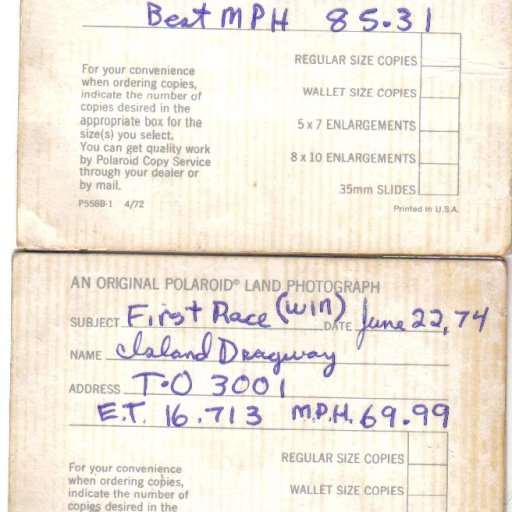 Best MPH 85.31
REGULAR SIZE COPIES
For your convenience
when ordering copies,
indicate the number of
copies desired in the
appropriate box for the
size(s) you select.
You can get quality work
by Polaroid Copy Service
through your dealer or
by mail.
WALLET SIZE COPIES
5 x 7 ENLARGEMENTS
8 x 10 ENLARGEMENTS
35mm SLIDES
P55BB-1 4/72
Printed in U.S.A.
AN ORIGINAL POLAROID® LAND PHOTOGRAPH
SUBJECT First Race (WIN) DATE June 22, 74
NAME Island Dragway
ADDRESS T-O 3001
E.T. 16.713 M.P.H. 69.99
REGULAR SIZE COPIES
For your convenience
when ordering copies,
indicate the number of
copies desired in the
WALLET SIZE COPIES